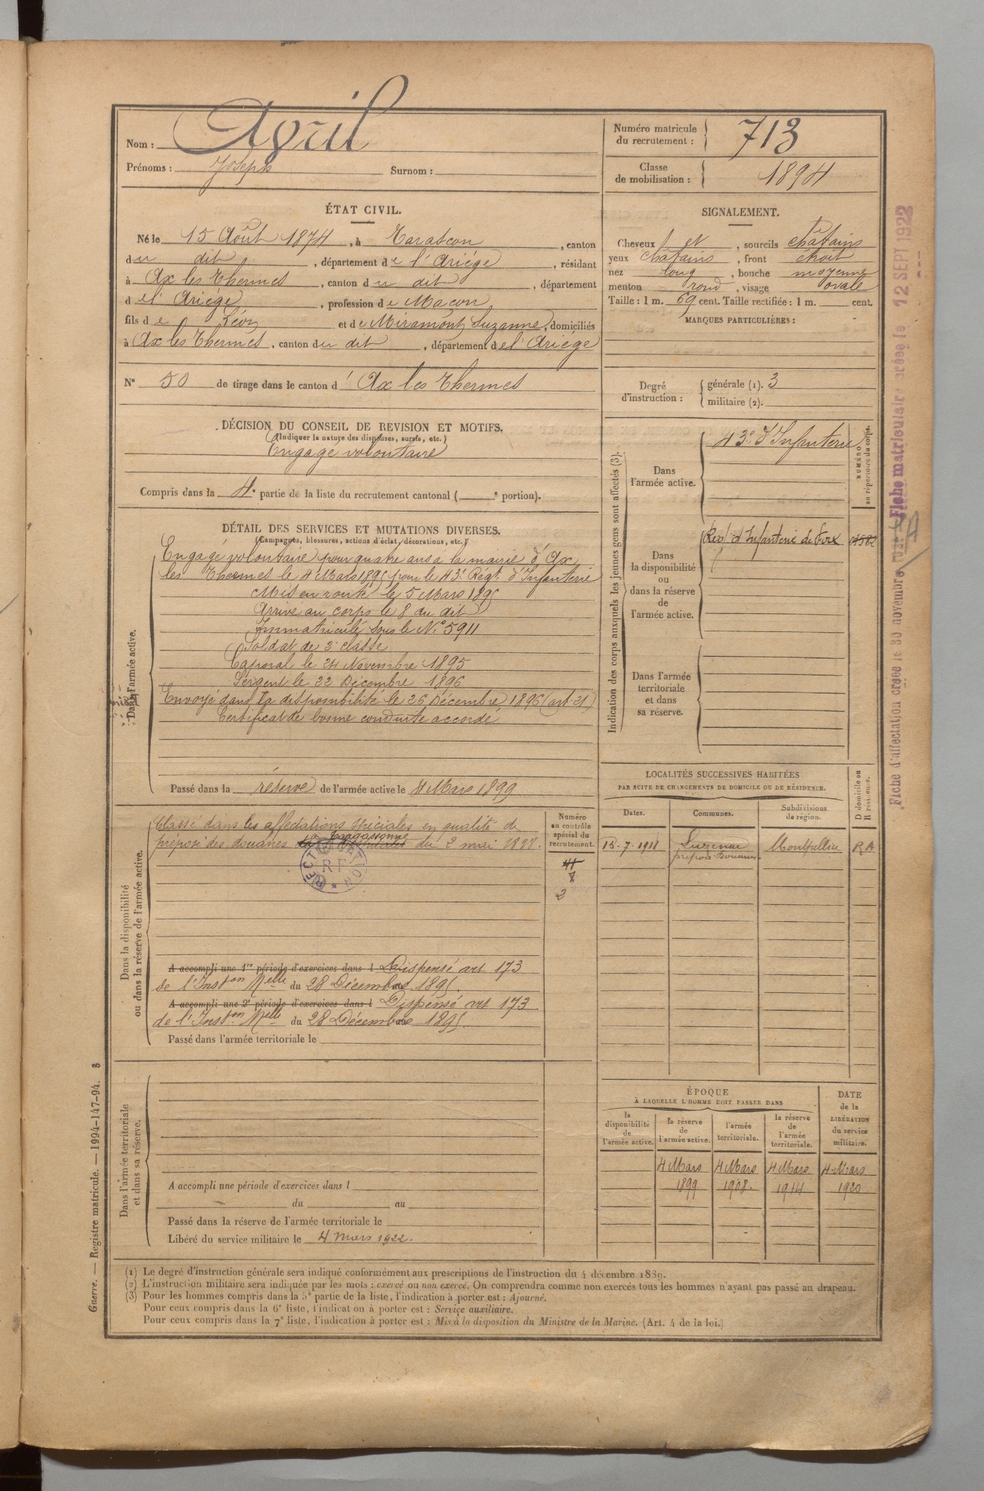 Nom : Avril
Prénoms : Joseph Surnom :
Numéro matricule du recrutement : 713
Classe de mobilisation : 1894
ÉTAT CIVIL.
Né le 15 Août 1874, à Tarascon, canton
du dit, département de l'Ariège, résidant
à Ax les Thermes, canton du dit, département
de l'Ariège, profession de Maçon,
fils de Léon et de Miramont Suzanne, domiciliés
à Ax les Thermes, canton du dit, département de l'Ariège
N° 50 de tirage dans le canton d' Ax les Thermes
SIGNALEMENT.
Cheveux et, sourcils châtains
yeux châtains, front étroit
nez long, bouche moyenne
menton rond, visage ovale
Taille : 1 m. 69 cent. Taille rectifiée : 1 m. cent.
MARQUES PARTICULIÈRES :
Degré d'instruction : générale (1). 3
militaire (2).
DÉCISION DU CONSEIL DE REVISION ET MOTIFS.
(Indiquer la nature des dispenses, sursis, etc.)
Engagé volontaire
Compris dans la 4e partie de la liste du recrutement cantonal ( e portion).
DÉTAIL DES SERVICES ET MUTATIONS DIVERSES.
(Campagnes, blessures, actions d'éclat, décorations, etc.)
Dans l'armée active.
Engagé volontaire pour quatre ans à la mairie d'Ax
les Thermes le 4 Mars 1895 pour le 43e Régt d'Infanterie
Mis en route le 5 Mars 1895
Arrivé au corps le 8 du dit
Immatriculé sous le N° 5911
Soldat de 2e classe
Caporal le 24 Novembre 1895
Sergent le 22 Décembre 1896
Envoyé dans la disponibilité le 26 Décembre 1896 (art. 21)
Certificat de bonne conduite accordé
Passé dans la réserve de l'armée active le 4 Mars 1899
Indication des corps auxquels les jeunes gens sont affectés (3).
NUMÉRO au répertoire du corps.
Dans l'armée active.
43e d'Infanterie
Dans la disponibilité ou dans la réserve de l'armée active.
Régt d'Infanterie de Foix
Dans l'armée territoriale et dans sa réserve.
LOCALITÉS SUCCESSIVES HABITÉES
PAR SUITE DE CHANGEMENTS DE DOMICILE OU DE RÉSIDENCE.
Dates. Communes. Subdivisions de région. D domicile ou R résidence.
15-7-1911 préposé Douanes Montpellier R.A.
Dans la disponibilité ou dans la réserve de l'armée active.
Numéro au contrôle spécial du recrutement.
Classé dans les affectations spéciales en qualité de
préposé des douanes Carcassonne du 2 mai
DIRECTION
R F
2
A accompli une 1re période d'exercices dans l Dispensé art 173
de l'Inston Melle du 28 Décembre 1895.
A accompli une 2e période d'exercices dans l Dispensé art 173
de l'Inston Melle du 28 Décembre 1895.
Passé dans l'armée territoriale le
Dans l'armée territoriale et dans sa réserve.
A accompli une période d'exercices dans l
du au
Passé dans la réserve de l'armée territoriale le
Libéré du service militaire le 4 mars 1922.
ÉPOQUE
À LAQUELLE L'HOMME DOIT PASSER DANS
la disponibilité de l'armée active. la réserve de l'armée active. l'armée territoriale. la réserve de l'armée territoriale.
DATE de la LIBÉRATION du service militaire.
4 Mars 1899 4 Mars 1908. 4 Mars 1914 4 Mars 1920
(1) Le degré d'instruction générale sera indiqué conformément aux prescriptions de l'instruction du 4 décembre 1889.
(2) L'instruction militaire sera indiquée par les mots : exercé ou non exercé. On comprendra comme non exercés tous les hommes n'ayant pas passé au drapeau.
(3) Pour les hommes compris dans la 5e partie de la liste, l'indication à porter est : Ajourné.
Pour ceux compris dans la 6e liste, l'indication à porter est : Service auxiliaire.
Pour ceux compris dans la 7e liste, l'indication à porter est : Mis à la disposition du Ministre de la Marine. (Art. 4 de la loi.)
Guerre. — Registre matricule. — 1994-147-94.
Fiche matriculaire créée le 12 SEPT 1922
Fiche d'affectation créée le 30 novembre